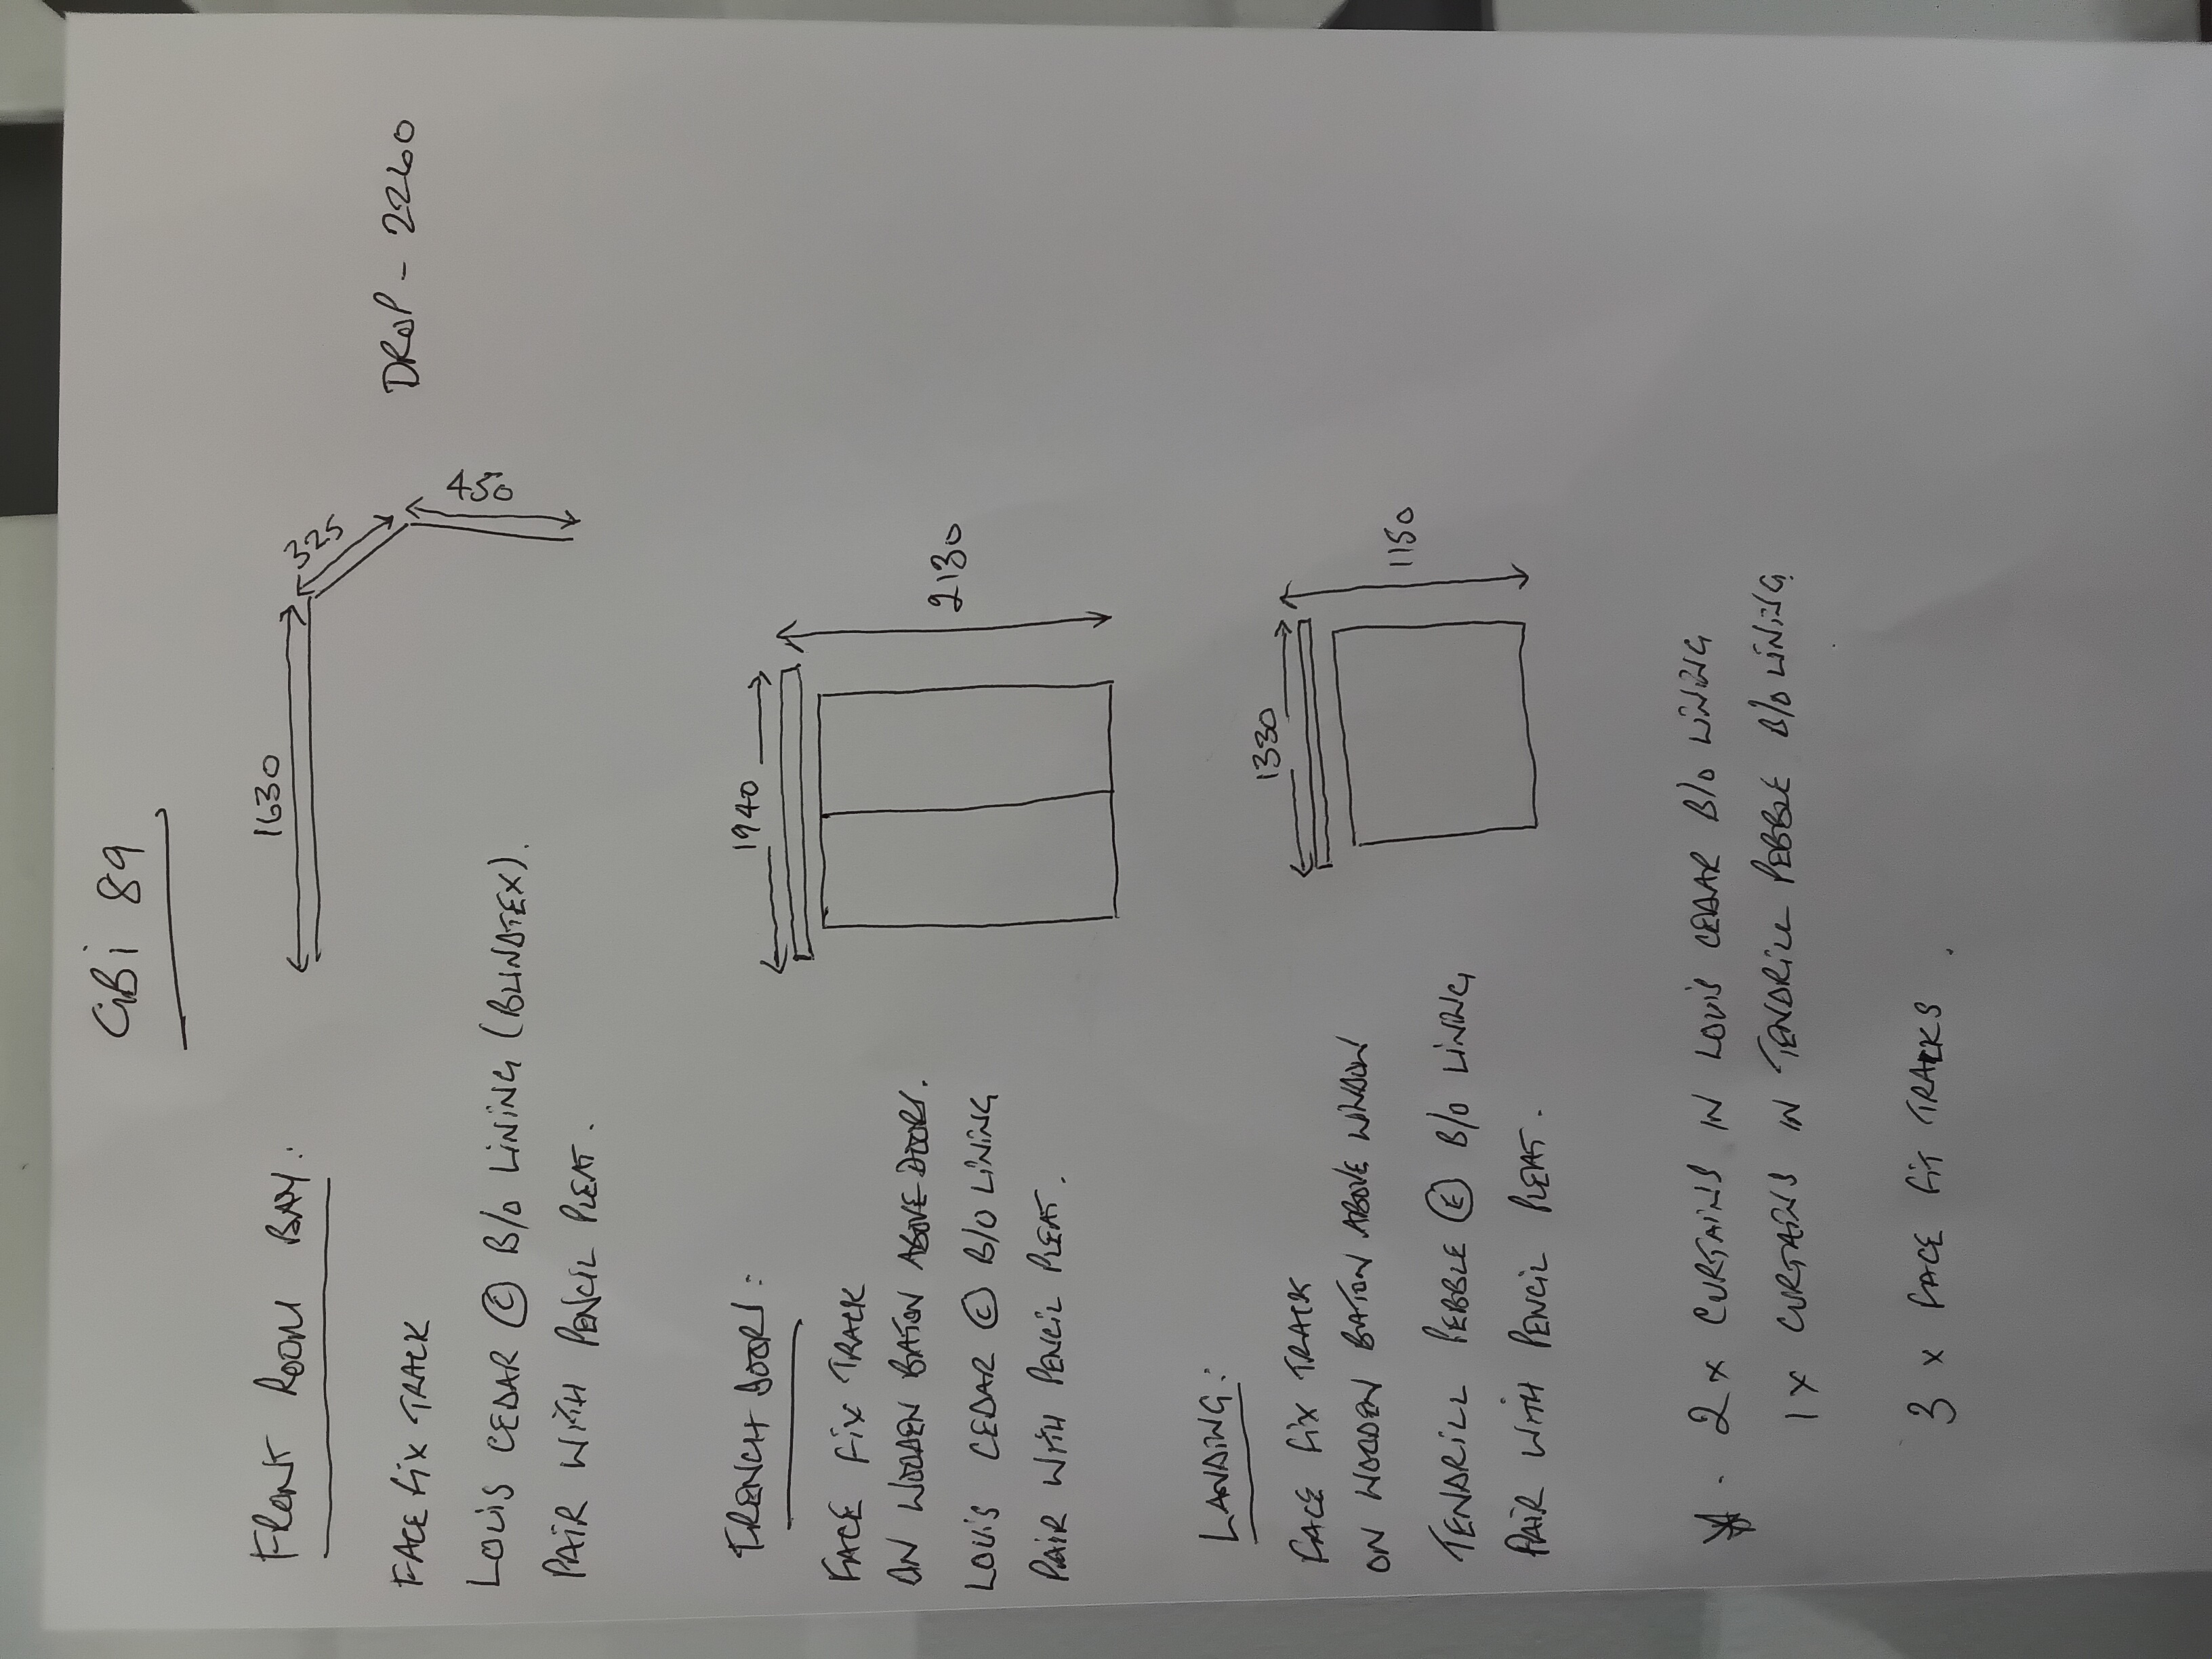 GBi 89
FRONT ROOM BAY:
1630
325
450
FACE FIX TRACK
DROP - 2260
LOUIS CEDAR Ⓒ B/O LINING (BLINDTEX).
PAIR WITH PENCIL PLEAT.
FRENCH DOORS:
1940
2130
FACE FIX TRACK
ON WOODEN BATON ABOVE DOORS.
LOUIS CEDAR Ⓒ B/O LINING
PAIR WITH PENCIL PLEAT.
LANDING:
1330
1150
FACE FIX TRACK
ON WOODEN BATON ABOVE WINDOW
TENDRILL PEBBLE Ⓔ B/O LINING
PAIR WITH PENCIL PLEAT.
2 x CURTAINS IN LOUIS CEDAR B/O LINING
1 x CURTAINS IN TENDRILL PEBBLE B/O LINING
3 x FACE FIT TRACKS.